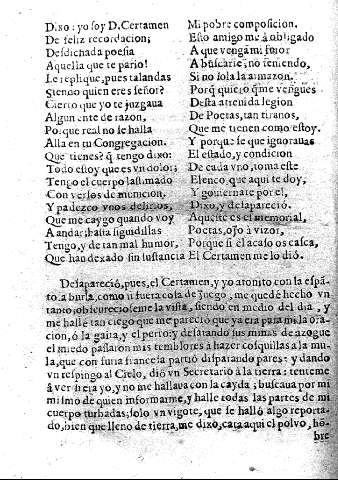 Dixo: yo soy D. Certamen
De feliz recordacion;
Desdichada poesia
Aquella que te pario!
Le replique, pues talandas
Siendo quien eres señor?
Cierto que yo te juzgaua
Algun ente de razon,
Porque real no se halla
Allà en tu Congregacion.
Que tienes? q̃ tengo dixo:
Todo estoy que es vn dolor;
Tengo el cuerpo lastimado
Con versos de mencion,
Y padezco vnos delirios,
Que me caygo quando voy
A andar; hasta siguidillas
Tengo, y de tan mal humor,
Que han dexado sin sustancia
Mi pobre composicion.
Esto amigo me à obligado
A que venga mi furor
A buscarte; no teniendo,
Si no sola la armazon.
Porq̃ quiero q̃ me vengues
Desta atreuida legion
De Poetas, tan tiranos,
Que me tienen como estoy.
Y porque se que ignorauas
El estado, y condicion
De cada vno, toma este
Elenco, que aqui te doy;
Y gouiernate por el,
Dixo, y desapareciò.
Aqueste es el memorial,
Poetas, ojo à vizor,
Porque si el acaso os casca,
El Certamen me lo diò.
Desapareciò, pues, el Certamen, y yo atonito con la espã-
to. a burla, como si fuera cosa de juego, me quedè hecho vn
tanto, obscureciòseme la vista, siendo en medio del dia, y
me hallè tan ciego que me pareciò que ya era para mi la ora-
cion, ò la gaita, y el perro; y desatando sus minas de azogue
el miedo passaron mis temblores à hacer cosquillas a la mu-
la, que con furia francesa partiò disparando pares: y dando
vn respingo al Cielo, diò vn Secretario à la tierra: tenteme
à ver si era yo, y no me hallaua con la cayda; buscaua por mi
mismo de quien informarme, y hallè todas las partes de mi
cuerpo turbadas; solo vn vigote, que se hallò algo reporta-
do, bien que lleno de tierra, me dixo, cata aqui el polvo, hõ-
bre